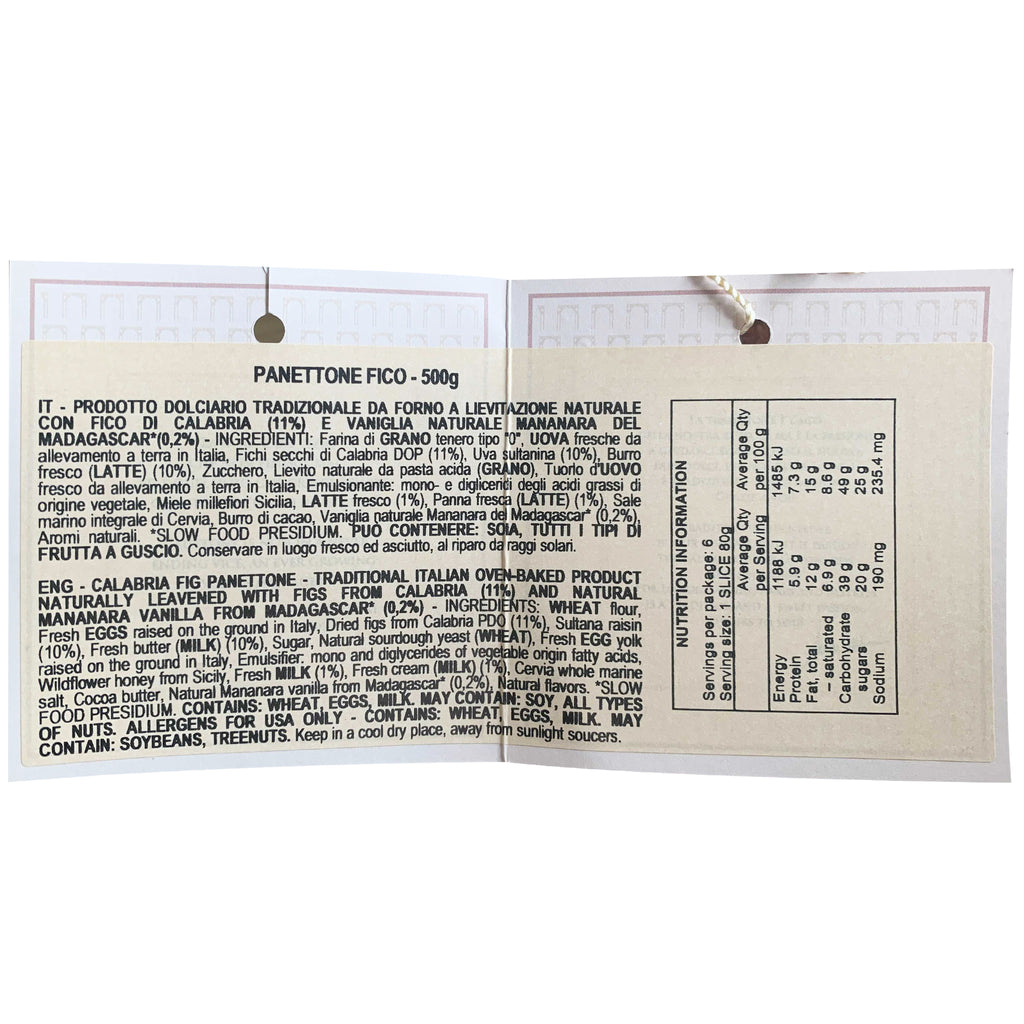 PANETTONE FICO - 500g
IT - PRODOTTO DOLCIARIO TRADIZIONALE DA FORNO A LIEVITAZIONE NATURALE
CON FICO DI CALABRIA (11%) E VANIGLIA NATURALE MANANARA DEL
MADAGASCAR*(0,2%) - INGREDIENTI: Farina di GRANO tenero tipo "0", UOVA fresche da
allevamento a terra in Italia, Fichi secchi di Calabria DOP (11%), Uva sultanina (10%), Burro
fresco (LATTE) (10%), Zucchero, Lievito naturale da pasta acida (GRANO), Tuorlo d'UOVO
fresco da allevamento a terra in Italia, Emulsionante: mono- e digliceridi degli acidi grassi di
origine vegetale, Miele millefiori Sicilia, LATTE fresco (1%), Panna fresca (LATTE) (1%), Sale
marino integrale di Cervia, Burro di cacao, Vaniglia naturale Mananara del Madagascar* (0,2%),
Aromi naturali. *SLOW FOOD PRESIDIUM. PUÒ CONTENERE: SOIA, TUTTI I TIPI DI
FRUTTA A GUSCIO. Conservare in luogo fresco ed asciutto, al riparo da raggi solari.
ENG - CALABRIA FIG PANETTONE - TRADITIONAL ITALIAN OVEN-BAKED PRODUCT
NATURALLY LEAVENED WITH FIGS FROM CALABRIA (11%) AND NATURAL
MANANARA VANILLA FROM MADAGASCAR* (0,2%) - INGREDIENTS: WHEAT flour,
Fresh EGGS raised on the ground in Italy, Dried figs from Calabria PDO (11%), Sultana raisin
(10%), Fresh butter (MILK) (10%), Sugar, Natural sourdough yeast (WHEAT), Fresh EGG yolk
raised on the ground in Italy, Emulsifier: mono and diglycerides of vegetable origin fatty acids,
Wildflower honey from Sicily, Fresh MILK (1%), Fresh cream (MILK) (1%), Cervia whole marine
salt, Cocoa butter, Natural Mananara vanilla from Madagascar* (0,2%), Natural flavors. *SLOW
FOOD PRESIDIUM. CONTAINS: WHEAT, EGGS, MILK. MAY CONTAIN: SOY, ALL TYPES
OF NUTS. ALLERGENS FOR USA ONLY - CONTAINS: WHEAT, EGGS, MILK. MAY
CONTAIN: SOYBEANS, TREENUTS. Keep in a cool dry place, away from sunlight soucers.
NUTRITION INFORMATION
Servings per package: 6
Serving size: 1 SLICE 80g
Average Qty per Serving Average Qty per 100 g
Energy 1188 kJ 1485 kJ
Protein 5.9 g 7.3 g
Fat, total 12 g 15 g
– saturated 6.9 g 8.6 g
Carbohydrate 39 g 49 g
sugars 20 g 25 g
Sodium 190 mg 235.4 mg